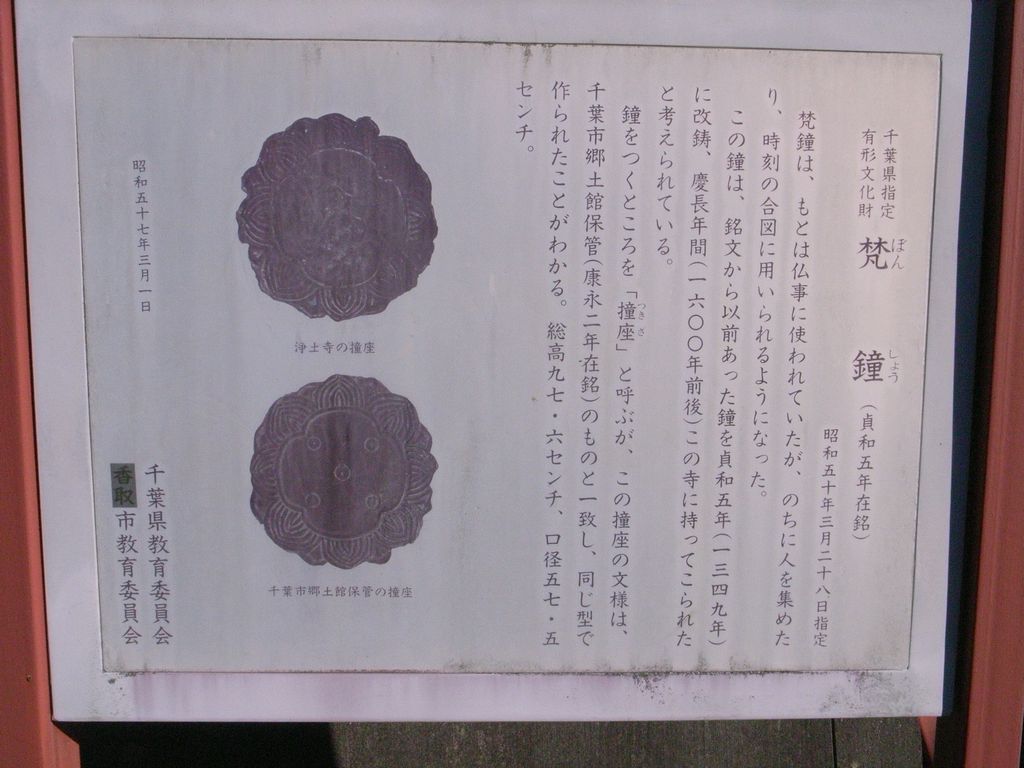 千葉県指定
有形文化財
梵鐘（貞和五年在銘）
ぼん
しょう
昭和五十年三月二十八日指定
梵鐘は、もとは仏事に使われていたが、のちに人を集めた
り、時刻の合図に用いられるようになった。
この鐘は、銘文から以前あった鐘を貞和五年（一三四九年）
に改鋳、慶長年間（一六〇〇年前後）この寺に持ってこられた
と考えられている。
鐘をつくところを「撞座」と呼ぶが、この撞座の文様は、
つきざ
千葉市郷土館保管（康永二年在銘）のものと一致し、同じ型で
作られたことがわかる。総高九七・六センチ、口径五七・五
センチ。
浄土寺の撞座
千葉市郷土館保管の撞座
昭和五十七年三月一日
千葉県教育委員会
香取市教育委員会